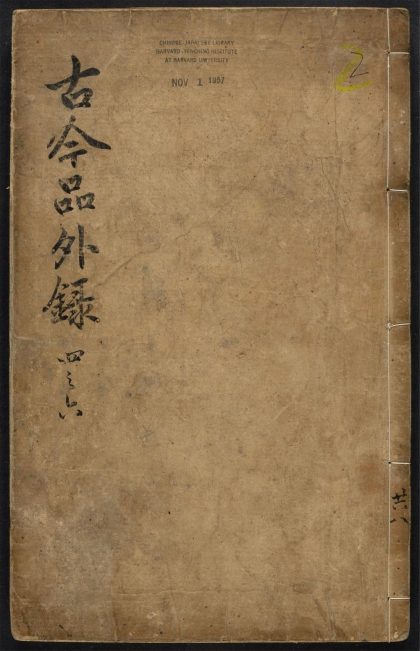 CHINESE-JAPANESE LIBRARY
HARVARD-YENCHING INSTITUTE
AT HARVARD UNIVERSITY
NOV 1 1957
2
古今品外録
四之六
共八